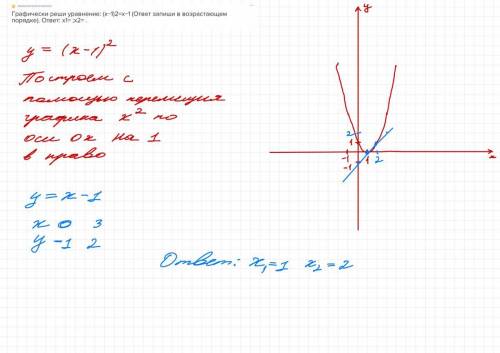 Графически реши уравнение: (x-1)2=x-1 (Ответ запиши в возрастающем
порядке). Ответ: x1= ;x2= .
y = (x-1)²
Построем с
помощью перемещия
графика x² по
оси ox на 1
в право
y = x-1
x 0 3
y -1 2
y
2
1
-1
1
2
x
-1
Ответ: x₁=1 x₂=2